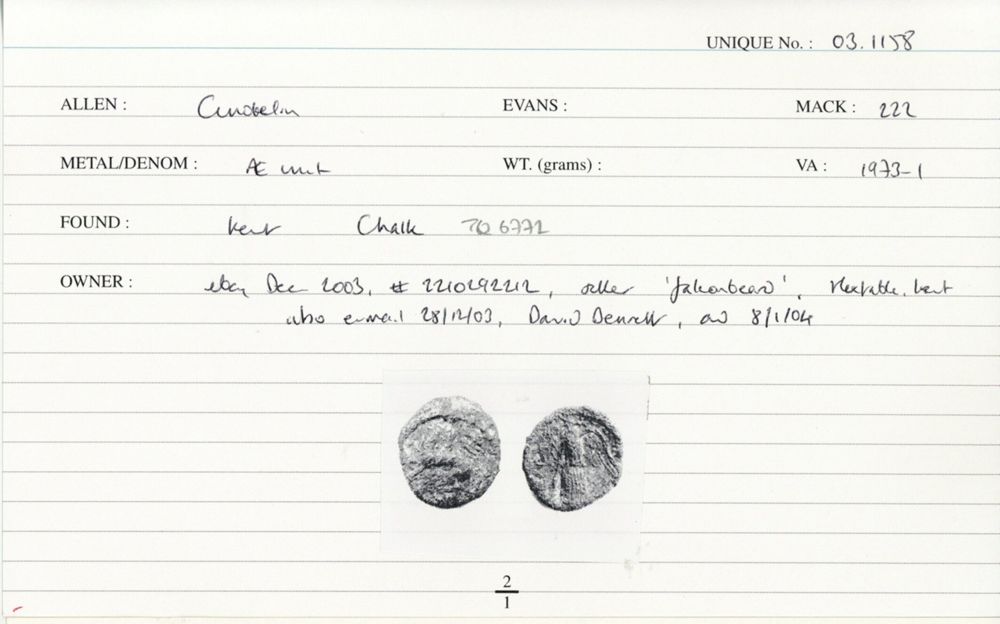 UNIQUE No. : 03.1158
ALLEN : Cunobelin EVANS : MACK : 222
METAL/DENOM : Æ unit WT. (grams) : VA : 1973-1
FOUND : Kent Chalk TQ 6772
OWNER : ebay Dec 2003, # 2210292212, seller , Kent
also e-mail 28/12/03, David Dennett, and 8/1/04
2
1